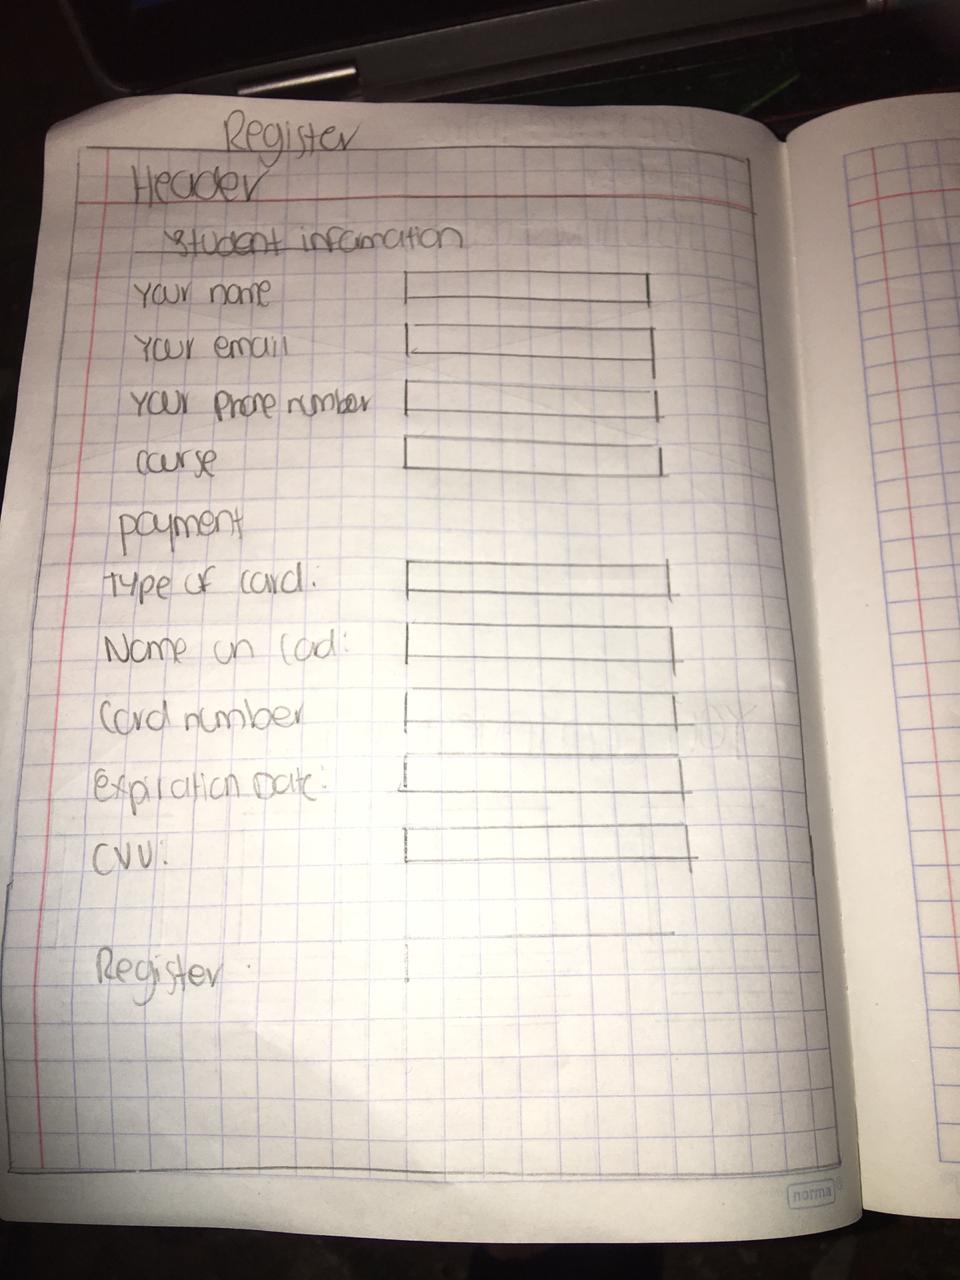 Register
Header
Student infamation
Your name
Your email
Your phone number
course
payment
Type of card:
Name on Cad:
Card number
Expiration Date:
CVV:
Register
norma